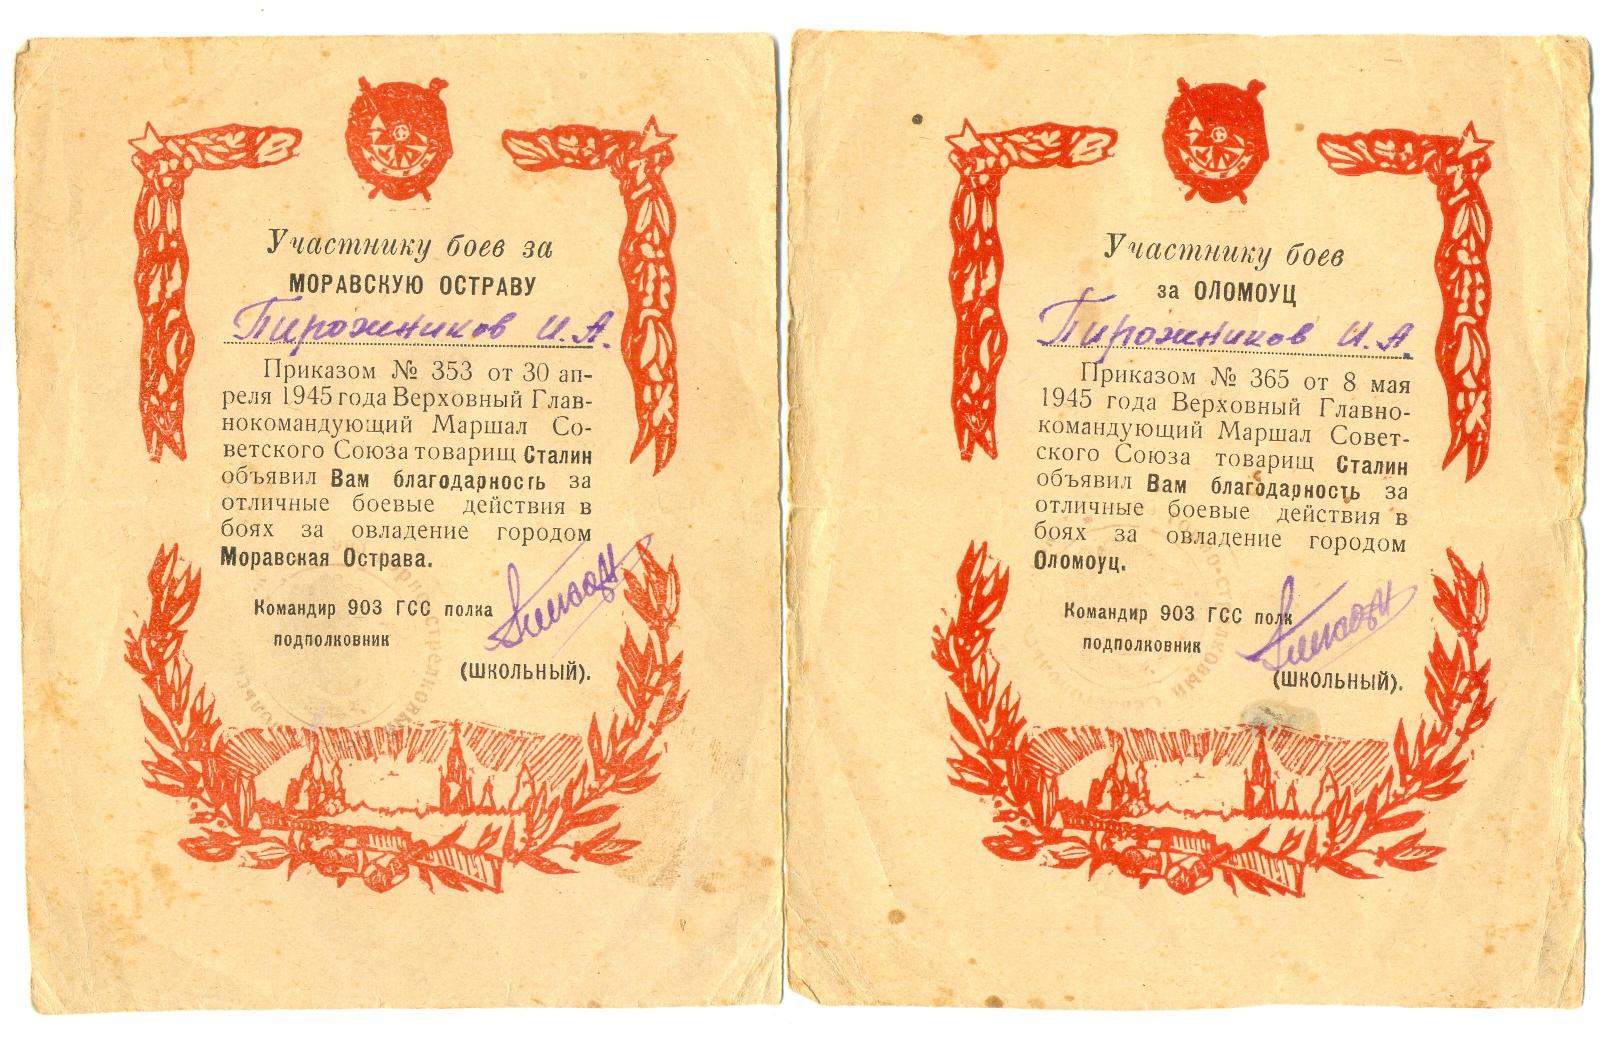 Участнику боев за
МОРАВСКУЮ ОСТРАВУ
Пирожников И.А.
Приказом № 353 от 30 ап-
реля 1945 года Верховный Глав-
нокомандующий Маршал Со-
ветского Союза товарищ Сталин
объявил Вам благодарность за
отличные боевые действия в
боях за овладение городом
Моравская Острава.
Командир 903 ГСС полка
подполковник
(ШКОЛЬНЫЙ).
Участнику боев
за ОЛОМОУЦ
Пирожников И.А.
Приказом № 365 от 8 мая
1945 года Верховный Главно-
командующий Маршал Совет-
ского Союза товарищ Сталин
объявил Вам благодарность за
отличные боевые действия в
боях за овладение городом
Оломоуц.
Командир 903 ГСС полк
подполковник
(ШКОЛЬНЫЙ).